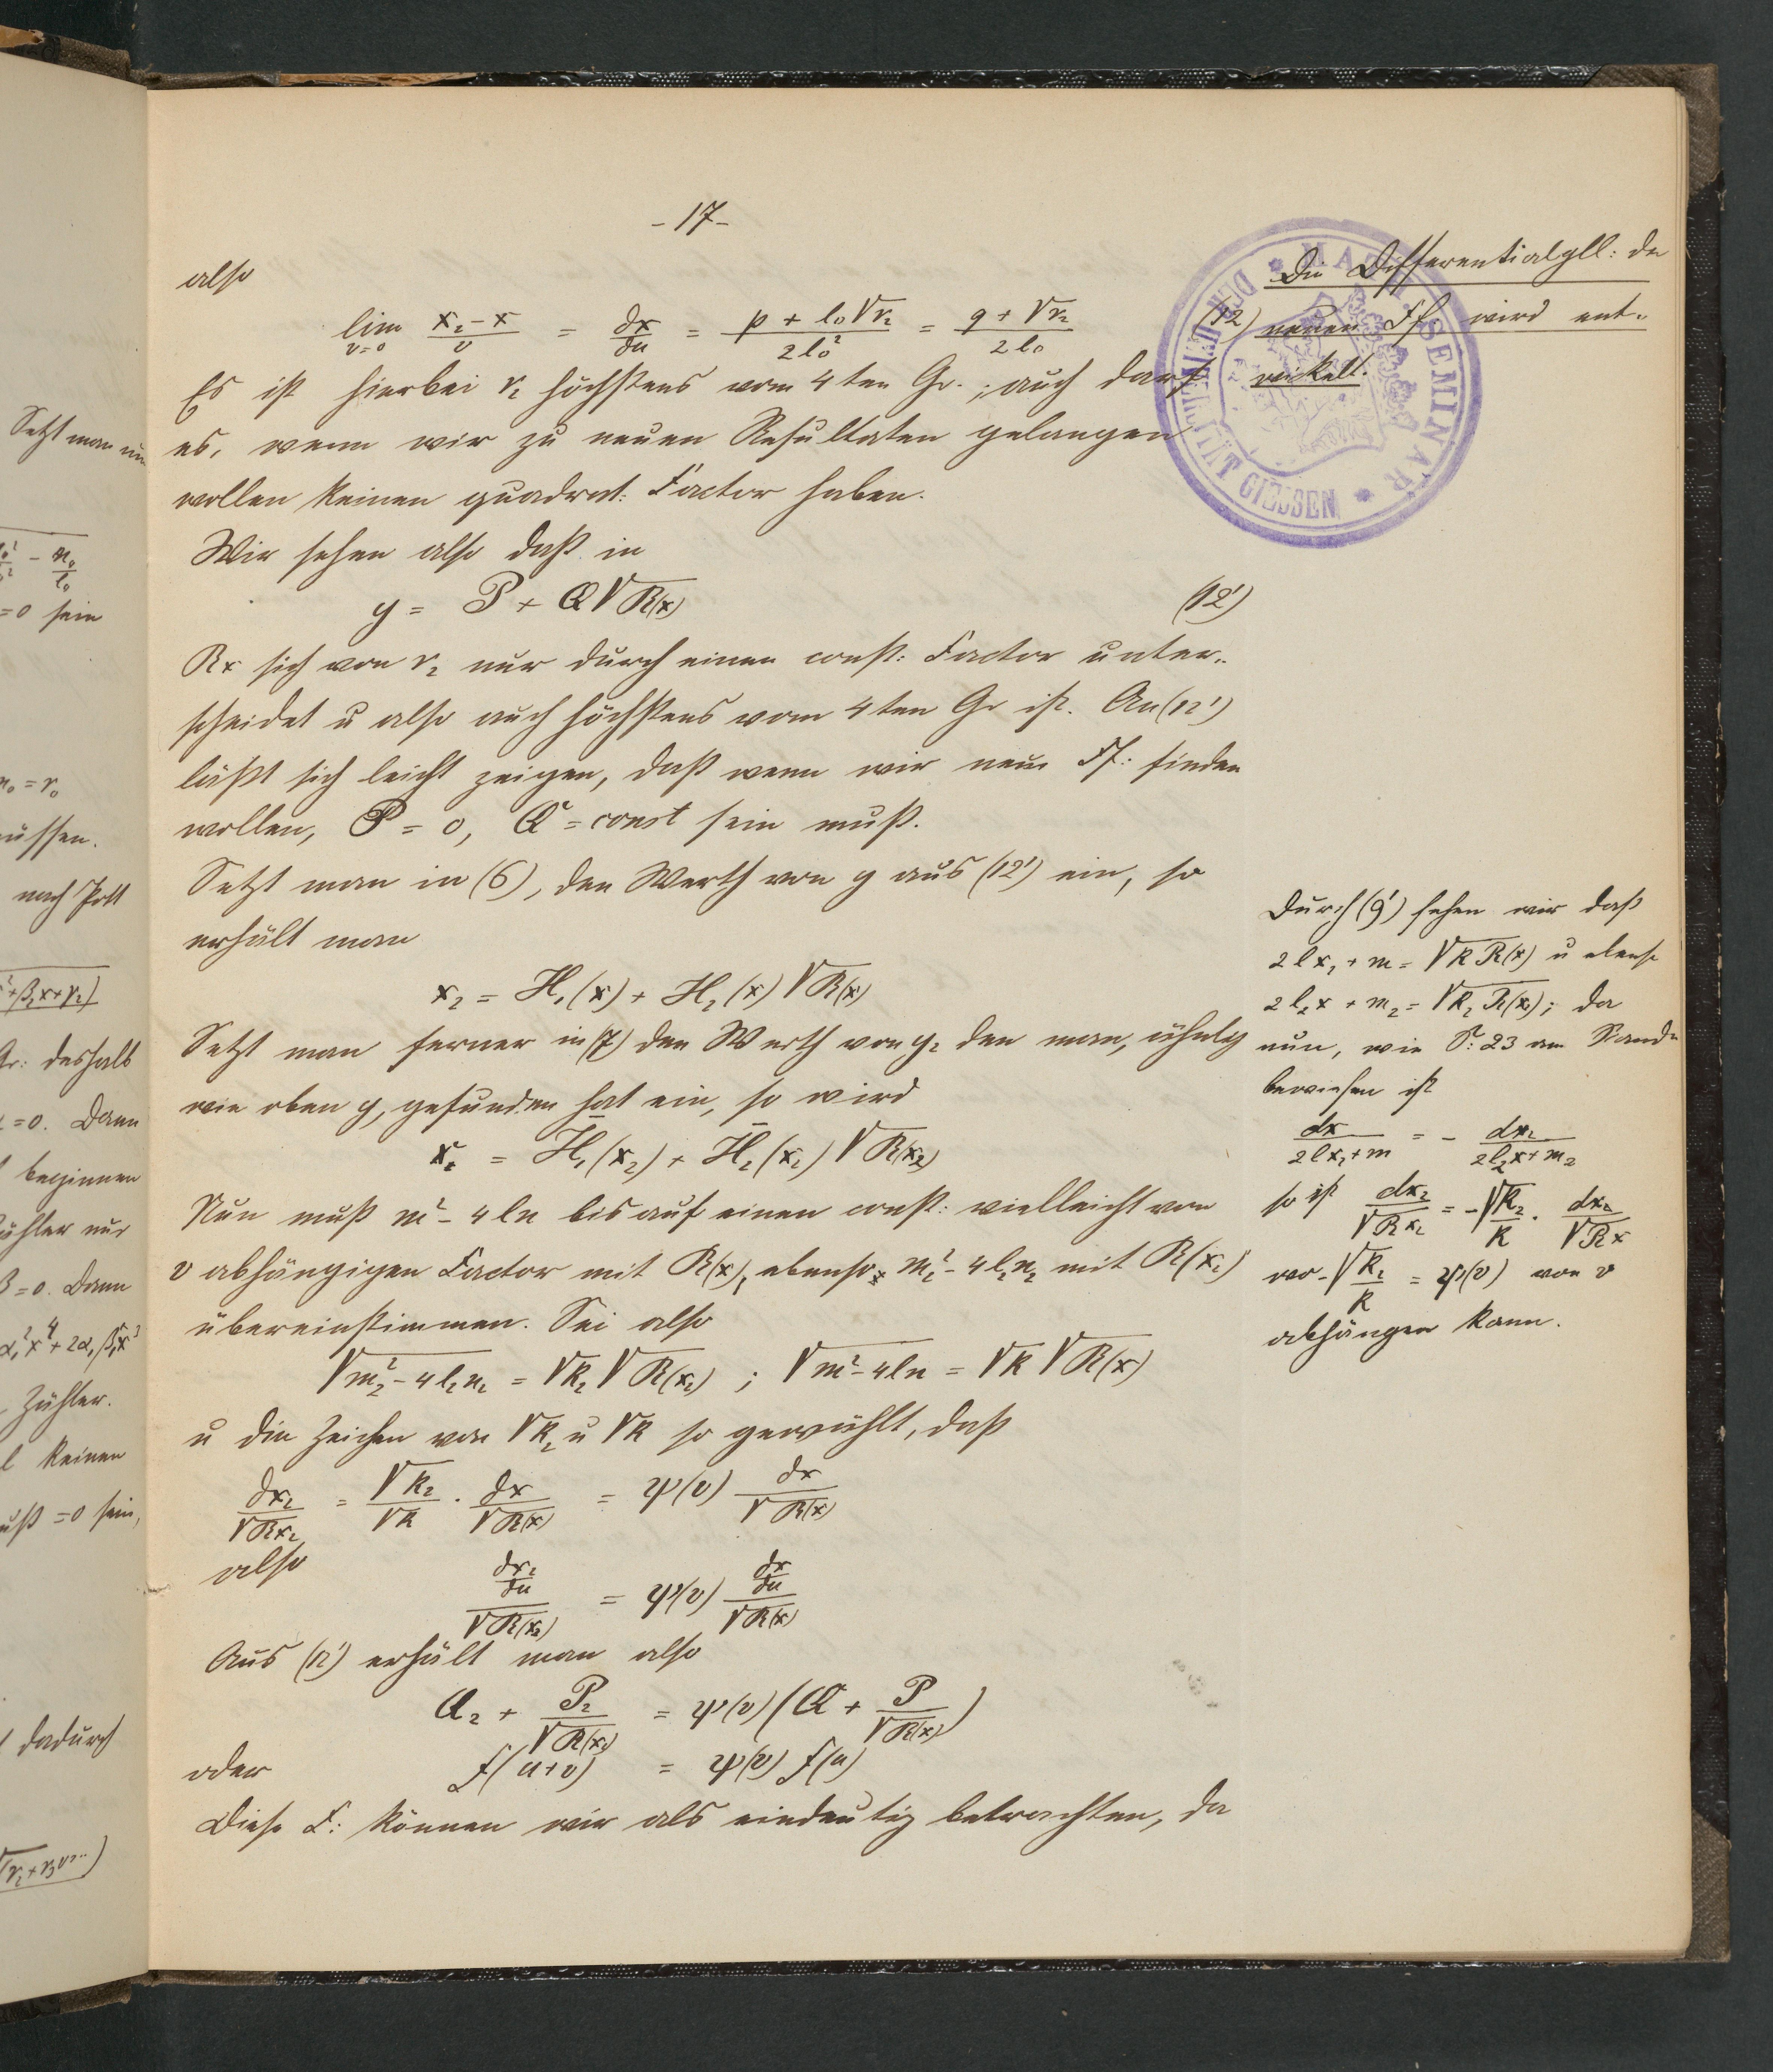 -17-
also
lim_{v=0} (x₂-x)/v = dx/du = (p + l₀√r₂)/(2l₀²) = (q + √r₂)/(2l₀) (12)
Es ist hierbei r₂ höchstens vom 4ten Gr.; auch darf
es, wenn wir zu neuen Resultaten gelangen
wollen keinen quadrat: Factor haben.
Wir sehen also daß in
y = P + Q√R(x) (12')
Rx sich von r₂ nur durch einen const: Factor unter-
scheidet u also auch höchstens vom 4ten Gr ist. An (12')
läßt sich leicht zeigen, daß wenn wir neue Ff: finden
wollen, P = 0, Q = const sein muß.
Setzt man in (6), den Werth von y aus (12') ein, so
erhält man
x₂ = H₁(x) + H₂(x)√R(x)
Setzt man ferner in (7) den Werth von y₂ den man, ähnlich
wie oben y, gefunden hat ein, so wird
x = H̄₁(x₂) + H̄₂(x₂)√R(x₂)
Nun muß m² - 4ln bis auf einen const: vielleicht von
v abhängigen Factor mit R(x), ebenso m₂² - 4l₂n₂ mit R(x₂)
übereinstimmen. Sei also
√m₂² - 4l₂n₂ = √k₂ √R(x₂) ; √m² - 4ln = √k √R(x)
u die Zeichen von √k₂ u √k so gewählt, daß
dx₂/√Rx₂ = √k₂/√k · dx/√R(x) = ψ(v) dx/√R(x)
also (dx₂/du)/√R(x₂) = ψ(v) (dx/du)/√R(x)
Aus (12') erhält man also
Q₂ + P₂/√R(x₂) = ψ(v)(Q + P/√R(x))
oder f(u+v) = ψ(v) f(u)
Diese F: können wir als eindeutig betrachten, da
Die Differentialgll: der
neuen Ff wird ent-
wickelt.
Durch (9') sehen wir daß
2lx₂ + m = √k R(x) u ebenso
2l₂x + m₂ = √k₂ R(x₂); da
nun, wie S: 23 am Rande
bewiesen ist
dx/(2lx₂+m) = - dx₂/(2l₂x+m₂)
so ist dx₂/√Rx₂ = -√k₂/k · dx/√Rx
wo -√k₂/k = ψ(v) von v
abhängen kann.
MATH. SEMINAR
DER UNIVERSITÄT GIESSEN
Setzt man nun
=0 sein
n₀ = r₀
müssen.
nach Pott
Gr: deshalb
=0. Dann
beginnen
Zähler nur
β=0. Dann
α₁²x⁴ + 2α₁β₁x³
Zähler.
l keinen
muß =0 sein,
dadurch